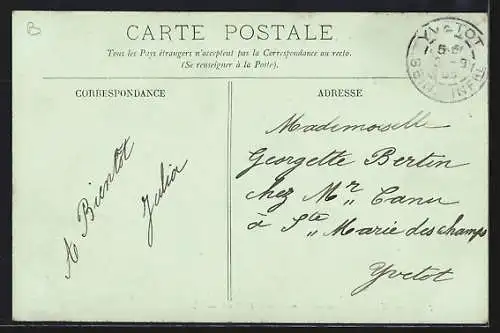 B
CARTE POSTALE
Tous les Pays étrangers n'acceptent pas la Correspondance au recto.
(Se renseigner à la Poste).
CORRESPONDANCE
A Bientôt
Julia
ADRESSE
Mademoiselle
Georgette Bertin
chez Mr Canu
à Ste Marie des champs
Yvetot
YVETOT
SEINE INFRE